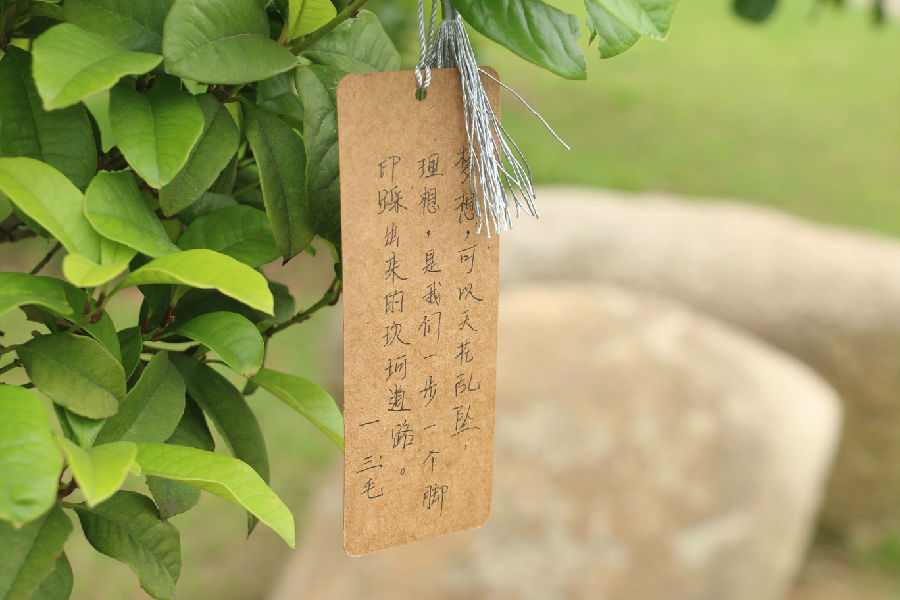 梦想，可以天花乱坠，
理想，是我们一步一个脚
印踩出来的坎坷道路。
一三毛